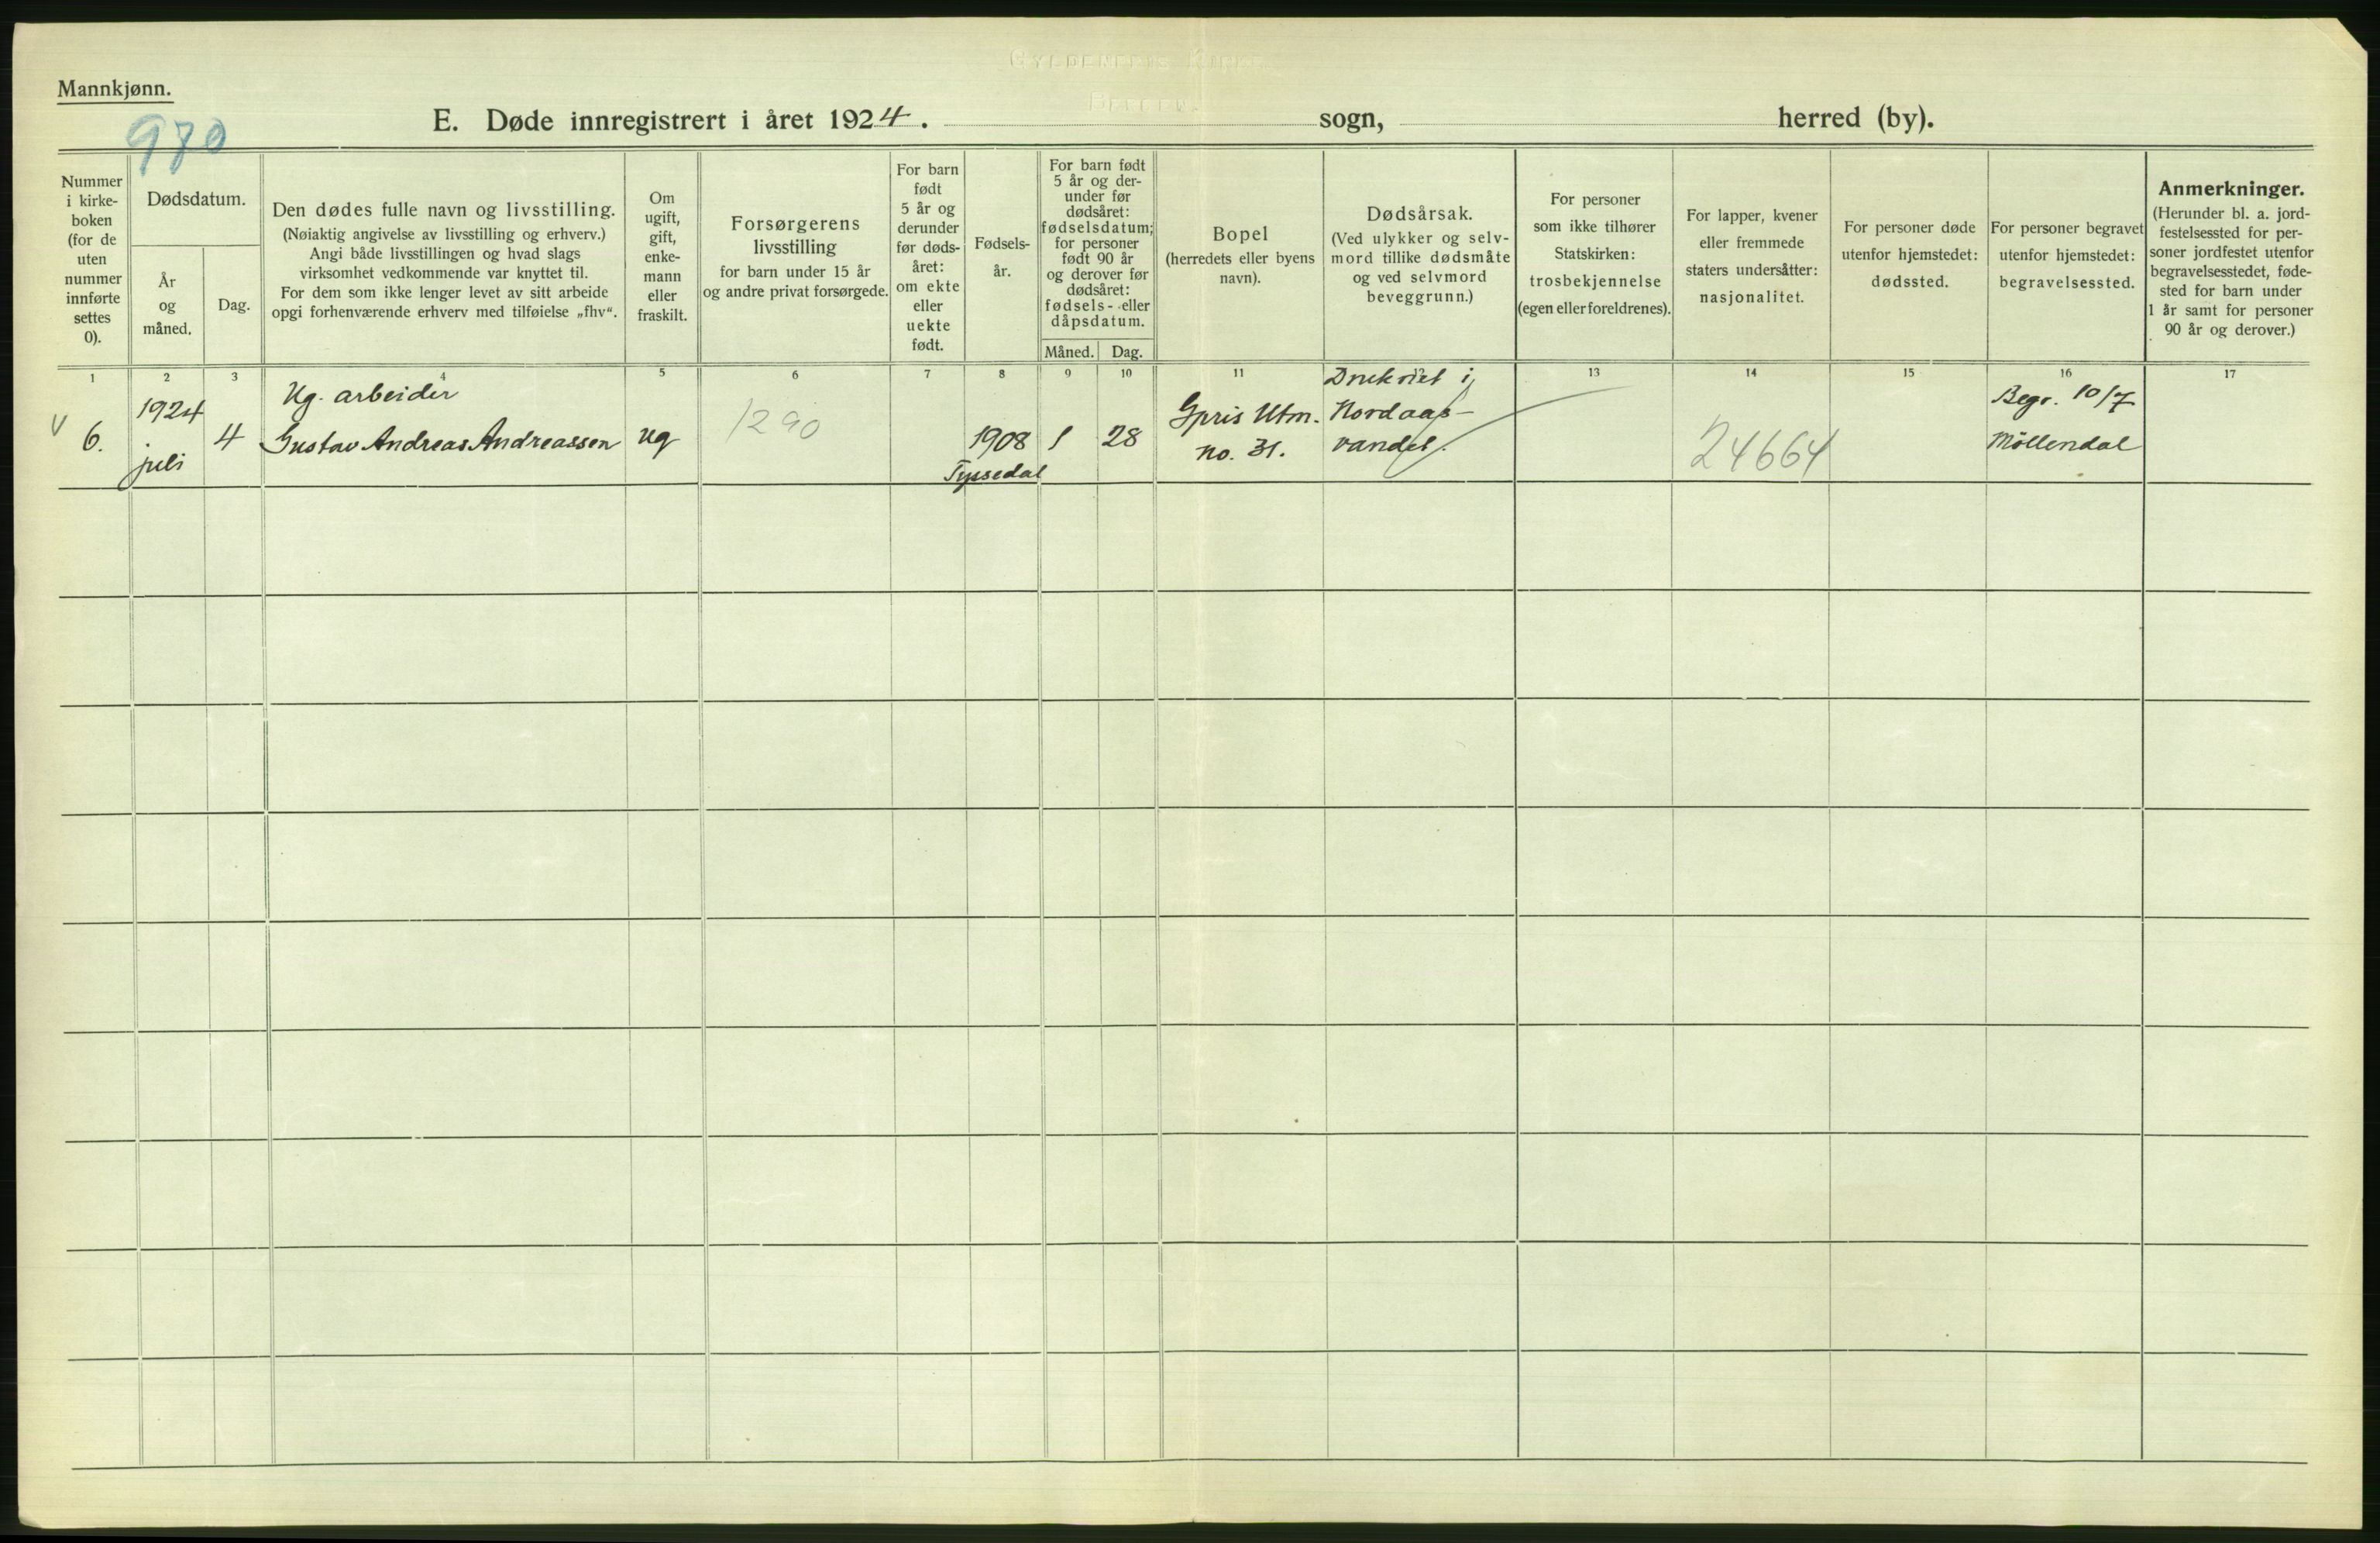 Mannkjønn.
970
E. Døde innregistrert i året 1924. sogn, herred (by).
Nummer
i kirke-
boken
(for de
uten
nummer
innførte
settes
0).
Dødsdatum.
År
og
måned.
Dag.
Den dødes fulle navn og livsstilling.
(Nøiaktig angivelse av livsstilling og erhverv.)
Angi både livsstillingen og hvad slags
virksomhet vedkommende var knyttet til.
For dem som ikke lenger levet av sitt arbeide
opgi forhenværende erhverv med tilføielse „fhv“.
Om
ugift,
gift,
enke-
mann
eller
fraskilt.
Forsørgerens
livsstilling
for barn under 15 år
og andre privat forsørgede.
For barn
født
5 år og
derunder
før døds-
året:
om ekte
eller
uekte
født.
Fødsels-
år.
For barn født
5 år og der-
under før
dødsåret:
fødselsdatum;
for personer
født 90 år
og derover før
dødsåret:
fødsels- eller
dåpsdatum.
Måned. Dag.
Bopel
(herredets eller byens
navn).
Dødsårsak.
(Ved ulykker og selv-
mord tillike dødsmåte
og ved selvmord
beveggrunn.)
For personer
som ikke tilhører
Statskirken:
trosbekjennelse
(egen eller foreldrenes).
For lapper, kvener
eller fremmede
staters undersåtter:
nasjonalitet.
For personer døde
utenfor hjemstedet:
dødssted.
For personer begravet
utenfor hjemstedet:
begravelsessted.
Anmerkninger.
(Herunder bl. a. jord-
festelsessted for per-
soner jordfestet utenfor
begravelsesstedet, føde-
sted for barn under
1 år samt for personer
90 år og derover.)
1 2 3 4 5 6 7 8 9 10 11 13 14 15 16 17
V 6.
1924
juli
4
Ug. arbeider
Gustav Andreas Andreassen
ug
1290
1908
Tyssedal
1 28
Gpris Utm.
No. 31.
Druknet i
Nordaas-
vandet.
24664
Begr. 10/7
Möllendal